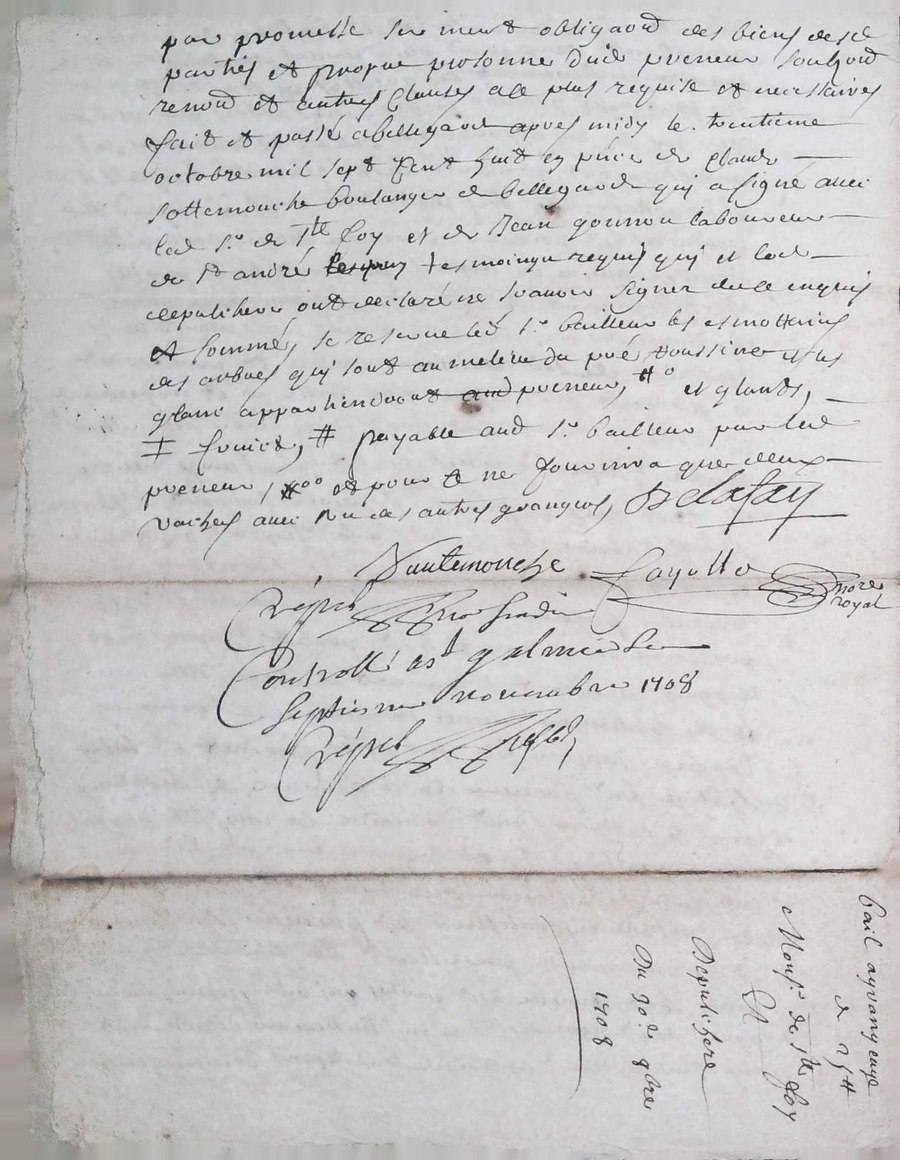 par promesse serment obligaõn des biens desd
parties et propre personne dud preneur soubzõn
renõn et autres clauses a ce plus requise et necessaires
fait et passé a bellegarde apres midy le trentieme
octobre mil sept cent huit en pñce de claude
sottemouche boulanger de bellegarde qui a signé avec
led sr de ste foy et de Jean gonnon laboureur
de st andré tesmoingn requis qui et led
depulichere ont declaré ne scavoir signer de ce enquis
et sommés, se reserve led sr bailleur les esmotteures
des arbres qui sont au melieu du pré et les
glanc appartiendront preneur, # o et glands,
# payable aud sr bailleur par led
preneur, oo et pour ne fournira que deux
vaches avec des autres granges, Delafay
Sautemouche Fayolle nore
royal
Controllé a st galmier le
septiesme novembre 1708
bail a grangeage
de
Monsr de ste foy
Et
Depulichere
Du 30e 8bre
1708